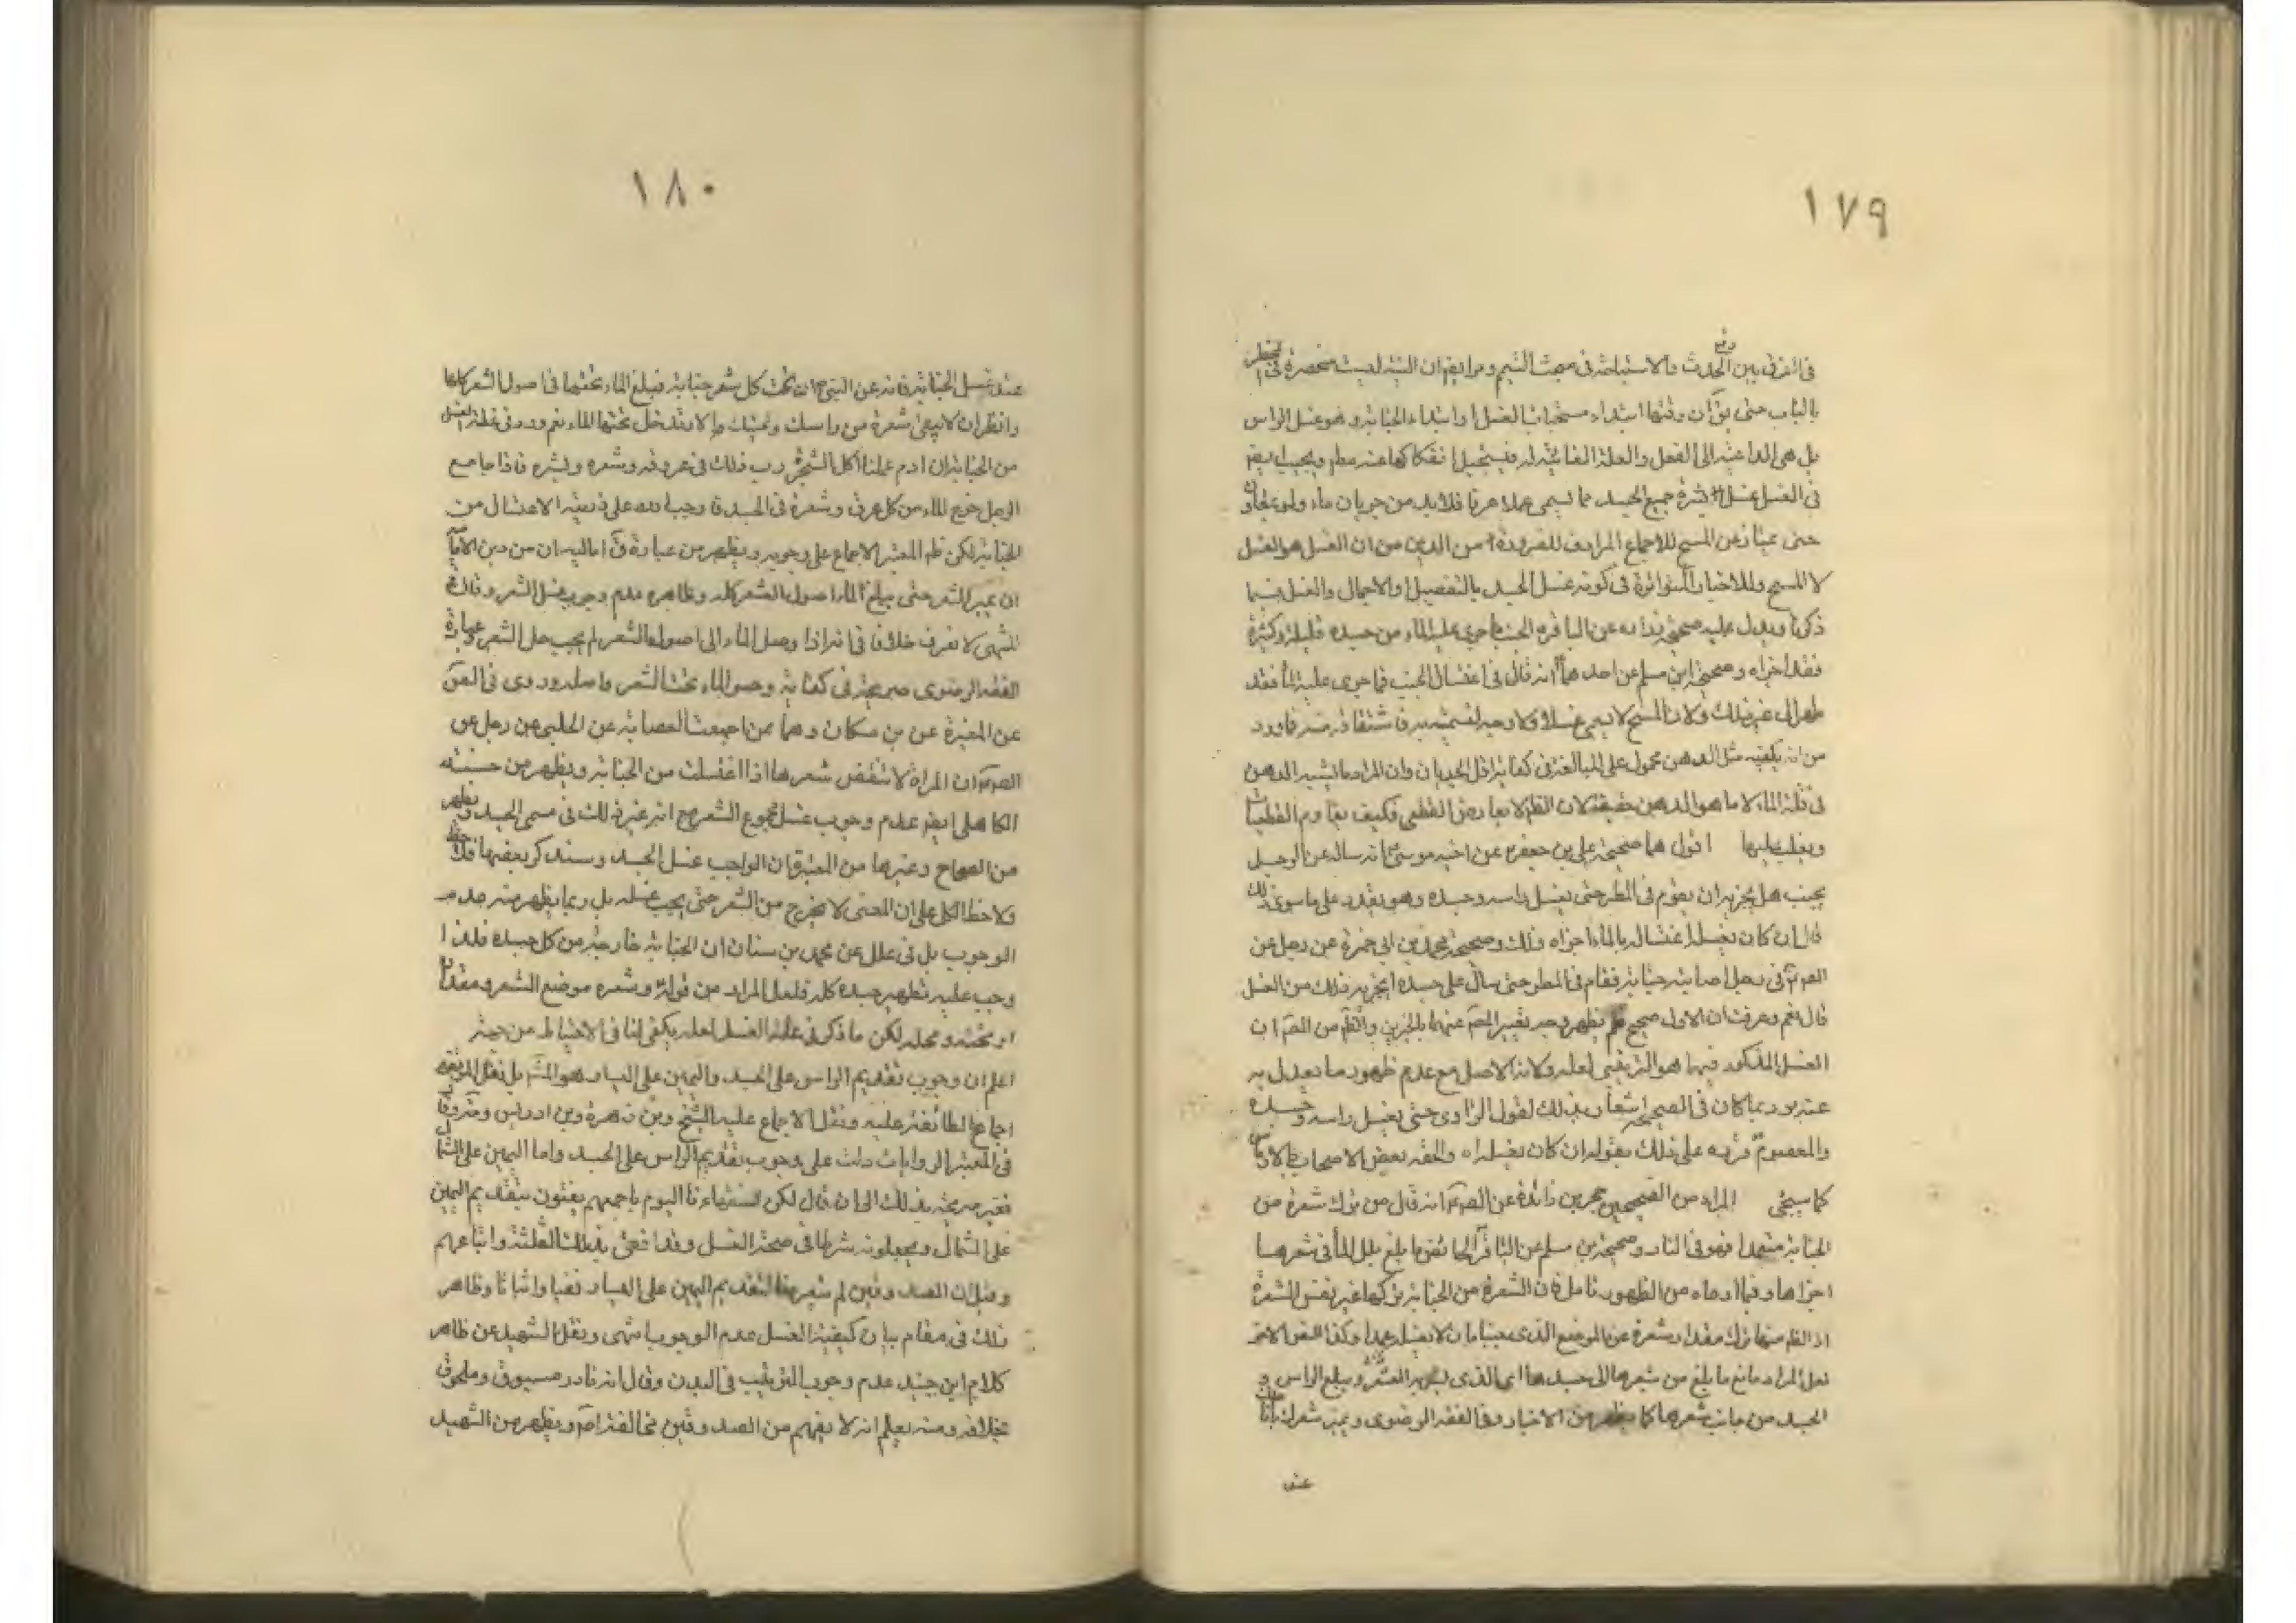 ١٧٩
في الفرق بين رفع الحدث والاستباحة في مبحث التيمم ومر ايضا ان النية ليست منحصرة في المخطر
بالباب حتى يق ان وقتها ابتداء مستحبات الغسل او ابتداء الجنابة وهو غسل الراس
بل هي الداعية الى الفعل والعلة الغائية له فيستحيل انفكاكها عنه مطم ويجب ايضم
في الغسل غسل بشرة جميع الجسد مما يسمى غسلا عرفا فلابد من جريان ماء ولو
حتى يمتاز عن المسح للاجماع المرادف للضرورة من الدين من ان الغسل هو الغسل
لا المسح وللاخبار المتواترة في كونه غسل الجسد بالتفصيل او الاجمال والغسل فيما
ذكرنا ويدل عليه صحيحة زرارة عن الباقر الجنب ما جرى عليه الماء من جسده قليله وكثيره
فقد اجزاه وصحيحة ابن مسلم عن احدهما انه قال في اغتسال الجنب فما جرى عليه الماء فقد
طهر الى غير ذلك ولان المسح لا يسمى غسلا ولا وجه لتسميته به فاشتقاقه منه فما ورد
من انه يكفيه مثل الدهن محمول على المبالغة في كفاية اقل الجريان وان المراد ما يشبه الدهن
في قلة الماء لا ما هو الدهن حقيقة لان الظن لا يعارض القطعي فكيف يقاوم القطعيات
ويغلب عليها اقول هما صحيحة علي بن جعفر عن اخيه موسى انه ساله عن الرجل
يجنب هل يجزيه ان يقوم في المطر حتى يغسل راسه وجسده وهو يقدر على ما سوى ذلك
قال ان كان يغسله اغتساله بالماء اجزاه ذلك وصحيحة محمد بن ابي حمزة عن رجل عن
الصم في رجل اصابته جنابة فقام في المطر حتى سال على جسده ايجزيه ذلك من الغسل
قال نعم وعرفت ان الاول صحيح يظهر وجه تغيير المصم عنهما بالخبرين والظم من المصم ان
الغسل المذكور فيهما هو الترتيبي لعله ولانه الاصل مع عدم ظهور ما يعدل به
عنه وربما كان في الصحيحة اشعار بذلك لقول الراوي حتى يغسل راسه وجسده
والمعصوم قرره على ذلك بقوله ان كان يغسله اه والحقه بعض الاصحاب بالارتماس
كما سيجئ المراد من الصحيحين حجر بن زائدة عن الصم انه قال من ترك شعرة من
الجنابة متعمدا فهو في النار وصحيحة بن مسلم عن الباقر الحائض ما بلغ بلل الماء في شعرها
اجزاها وفيما ادعاه من الظهور تامل فان الشعرة من الجنابة تركها غير نفس الشعرة
اذ الظم منها ترك مقدار شعرة عن الموضع الذي يجنبا بان لا يغسل عمدا وكذا النص الاخر
لعل المراد ما بلغ من شعرها الى جسدها اي الذي يستره الشعر ويبلغ الراس و
الجسد من جانب شعرها كما يظهر من الاخبار وفي الفقه الرضوي وميز شعرك باناملك
عند
١٨٠
عند غسل الجنابة فانه عن النبي ان تحت كل شعر جنابة فبلغ الماء تحتها في اصول الشعر كلها
وانظر ان لا يبقى شعرة من راسك ولحيتك الا وتدخل تحتها الماء نعم ورد في علة الغسل
من الجنابة ان ادم لما اكل الشجرة دب ذلك في عروقه وشعره وبشره فاذا جامع
الرجل خرج الماء من كل عرق وشعرة في الجسد فاوجب الله على ذريته الاغتسال من
الجنابة لكن ظم المعتبر الاجماع على وجوبه ويظهر من عبارة ق اماليه ان من دين الامامية
ان يميز الشعر حتى يبلغ الماء اصول الشعر كله وظاهره عدم وجوب غسل الشعر وقال في
المنتهى لا نعرف خلافا في انه اذا وصل الماء الى اصول الشعر لم يجب حل الشعر وعبارة
الفقه الرضوي صريحة في كفاية وصول الماء تحت الشعر واصله وروى في الصح
عن المغيرة عن بن مسكان وهما ممن اجمعت العصابة عن الحلبي عن رجل عن
الصم ان المراة لا تنقض شعرها اذا اغتسلت من الجنابة ويظهر من حسنته
الكاهلي ايضم عدم وجوب غسل مجموع الشعر مع انه غير ذلك في مسمى الجسد ويظهر
من الصحاح وغيرها من المعتبرة ان الواجب غسل الجسد وسنذكر بعضها فلاحظ
ولاحظ الكل على ان المعنى لا يخرج من الشعر حتى يجب غسله بل ربما يظهر منه عدم
الوجوب بل في علل عن محمد بن سنان ان الجنابة خارجة من كل جسده فلذا
وجب عليه تطهير جسده كله فلعل المراد من قوله وشعره موضع الشعر ومقداره
او تحته ومحله لكن ما ذكر في علة الغسل لعله يكفي لنا في الاحتياط من جهته
اعلم ان وجوب تقديم الراس على الجسد واليمين على اليسار هو المشم بل نقل المرتضى
اجماع الطائفة عليه ونقل الاجماع عليه الشيخ وبن زهرة وبن ادريس وعنه وقال
في المعتبر الروايات دلت على وجوب تقديم الراس على الجسد واما اليمين على الشمال
فغير صريحة بذلك الى ان قال لكن فقهاءنا اليوم باجمعهم يفتون بتقديم اليمين
على الشمال ويجعلونه شرطا في صحة الغسل وقد افتى بذلك الثلثة واتباعهم
وقيل ان الصدوقين لم يتعرضا لتقديم اليمين على اليسار نفيا واثباتا وظاهر
ذلك في مقام بيان كيفية الغسل عدم الوجوب انتهى ونقل الشهيد عن ظاهر
كلام ابن جنيد عدم وجوب الترتيب في البدن وقال انه نادر مسبوق وملحوق
بخلافه ومنه يعلم انه لا يفهم من الصدوقين مخالفة اصم ويظهر من الشهيد